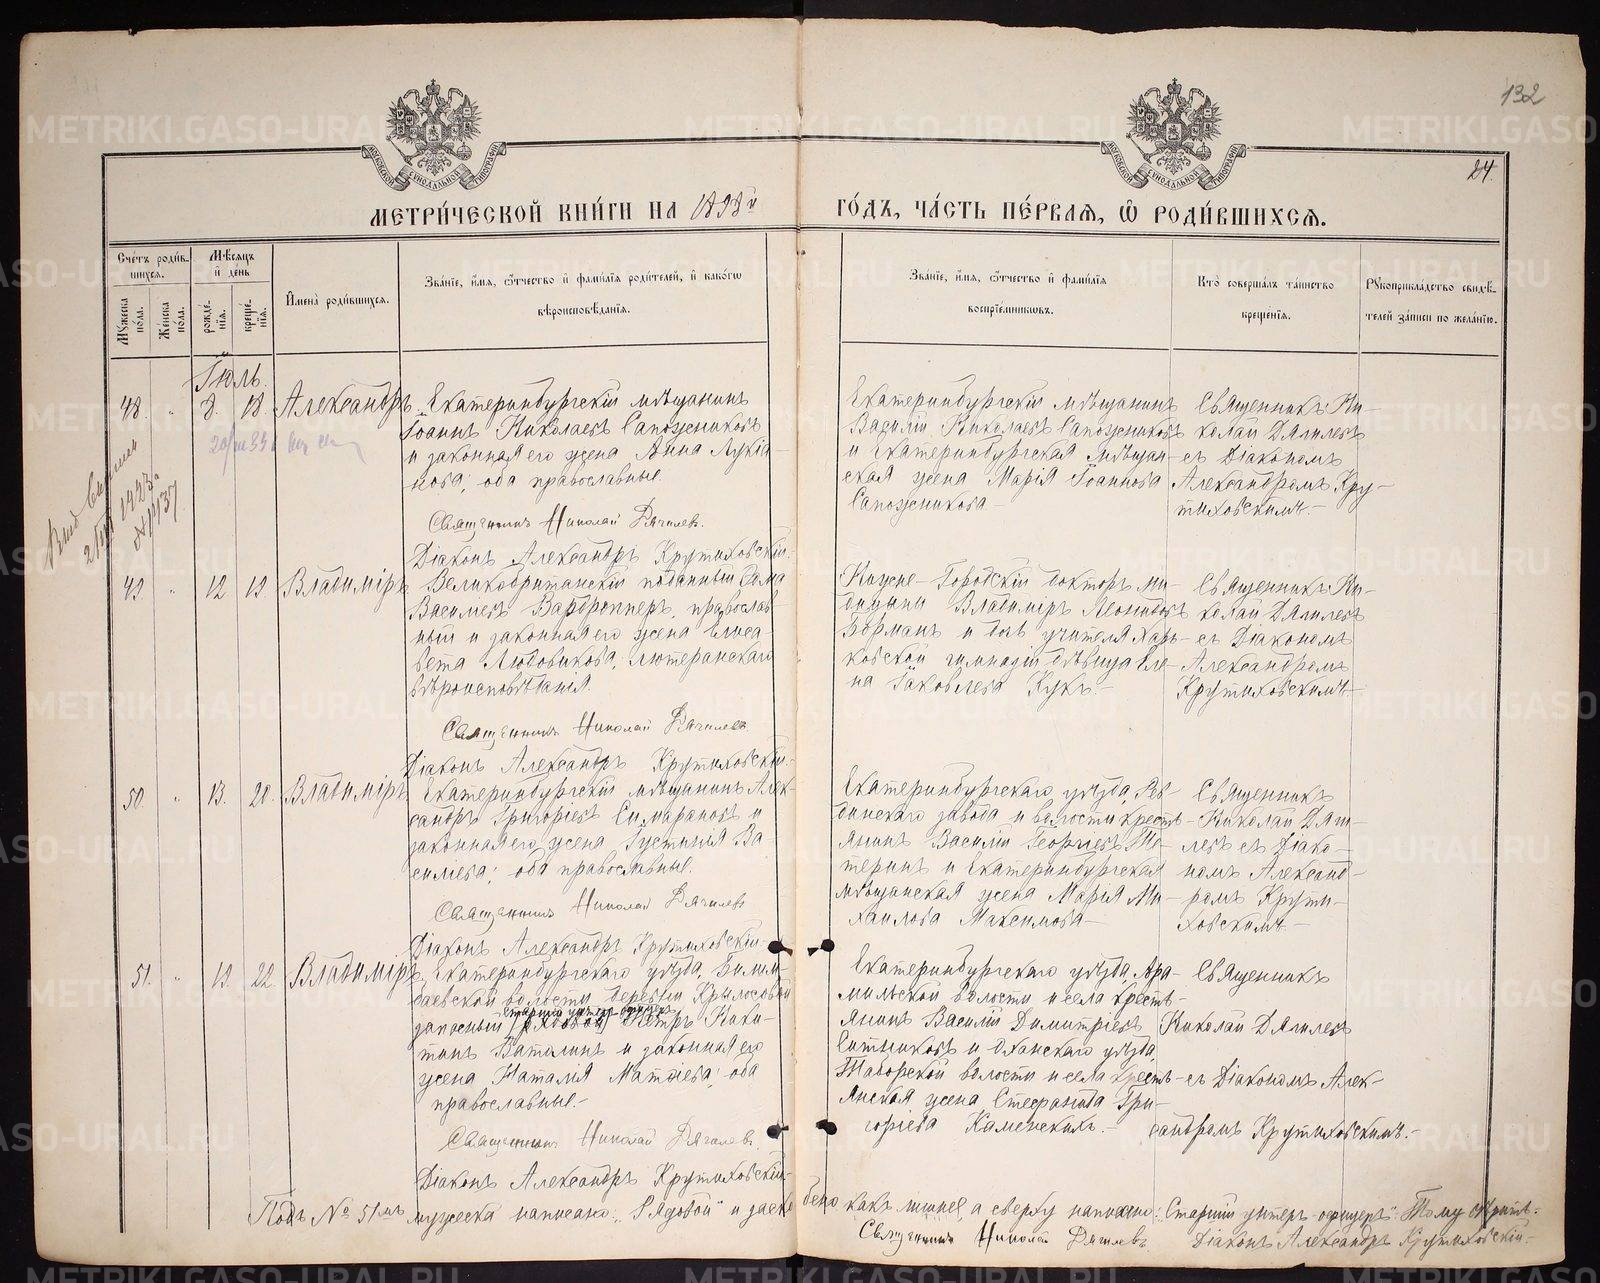 132
24.
МЕТРИ́ЧЕСКОЙ КНИ́ГИ НА 1898й ГО́ДЪ, ЧА́СТЬ ПЕ́РВАѦ, Ѡ҆ РОДИ́ВШИХСѦ.
Сче́тъ роди́вшихсѧ.
Мѣ́сѧцъ и҆ де́нь
Мꙋ́жеска по́ла.
Же́нска по́ла.
рожде́нїѧ.
креще́нїѧ.
И҆мена̀ роди́вшихсѧ.
Зва́нїе, и҆́мѧ, ѻ҆́тчество и҆ фами́лїѧ роди́телей, и҆ како́гѡ вѣроисповѣ́данїѧ.
Зва́нїе, и҆́мѧ, ѻ҆́тчество и҆ фами́лїѧ воспрїе́мникѡвъ.
Кто̀ соверша́лъ та́инство креще́нїѧ.
Рꙋкоприкла́дство свидѣ́телей за́писи по жела́нїю.
Іюль.
48. " 8. 18. Александръ
Екатеринбургскій мѣщанинъ
Іоаннъ Николаевъ Сапожниковъ
и законная его жена Анна Лукіа-
нова; оба православные.
Священникъ Николай Дягилевъ.
Діаконъ Александръ Крутиховскій.
Екатеринбургскій мѣщанинъ
Василій Николаевъ Сапожниковъ
и Екатеринбургская мѣщан-
ская жена Марія Іоаннова
Сапожникова.
Священникъ Ни-
колай Дягилевъ
съ Діакономъ
Александромъ Кру-
тиховскимъ.
49. " 12 19 Владиміръ
Великобританскій подданный
Васильевъ православ
ный и законная его жена Елиса-
вета Людовикова, лютеранскаго
вѣроисповѣданія.
Священникъ Николай Дягилевъ
Діаконъ Александръ Крутиховскій.
Городскій докторъ ме-
дицины Владиміръ Леонидовъ
Борманъ и дочь учителя Харь-
ковской гимназіи дѣвица Еле-
на Іаковлева Кукъ.
Священникъ Ни-
колай Дягилевъ
съ Діакономъ
Александромъ
Крутиховскимъ.
50. " 13. 20. Владиміръ
Екатеринбургскій мѣщанинъ Алек-
сандръ Григорьевъ и
законная его жена Іустинія Ва-
силіева; оба православные.
Священникъ Николай Дягилевъ
Діаконъ Александръ Крутиховскій.
Екатеринбургскаго уѣзда, Рев-
динскаго завода и волости крестъ-
янинъ Василій Георгіевъ Те-
теринъ и Екатеринбургская
мѣщанская жена Марія Ми-
хаилова Максимова
Священникъ
Николай Дяги-
левъ съ Діако-
номъ Александ-
ромъ Крути-
ховскимъ.
51. " 19. 22 Владиміръ
Екатеринбургскаго уѣзда, Билим-
баевской волости деревни Крылосовой
запасный (рядовой) Петръ Ники-
старшій унтеръ-офицеръ
тинъ Ваталинъ и законная его
жена Наталія Матѳіева; оба
православные.
Священникъ Николай Дягилевъ.
Діаконъ Александръ Крутиховскій.
Екатеринбургскаго уѣзда, Ара-
мильской волости и села кресть-
янинъ Василій Димитріевъ
Ситниковъ и Оханскаго уѣзда,
Таборской волости и села кресть-
янская жена Стефанида Гри-
горіева Каменскихъ.
Священникъ
Николай Дягилевъ
съ Діакономъ Алек-
сандромъ Крутиховскимъ.
Подъ № 51мъ мужеска написано: "Рядовой" и какъ лишнее, а сверху написано: "Старшій унтеръ-офицеръ". Тому
Священникъ Николай Дягилевъ Діаконъ Александръ Крутиховскій.
METRIKI.GASO-URAL.RU